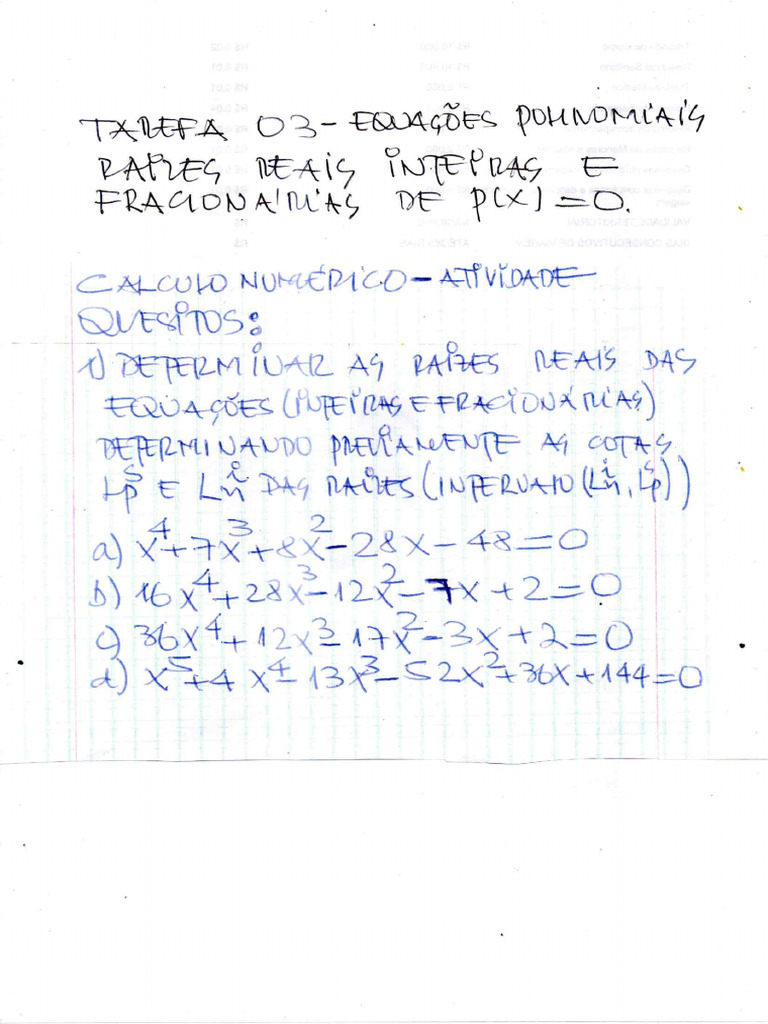 TAREFA 03 - EQUAÇÕES POLINOMIAIS
RAÍZES REAIS INTEIRAS E
FRACIONÁRIAS DE P(X) = 0.
CALCULO NUMÉRICO - ATIVIDADE
QUESITOS:
1) DETERMINAR AS RAÍZES REAIS DAS
EQUAÇÕES (INTEIRAS E FRACIONÁRIAS)
DETERMINANDO PREVIAMENTE AS COTAS
Lps E Lni DAS RAÍZES (INTERVALO (Lni, Lps))
a) x⁴ + 7x³ + 8x² - 28x - 48 = 0
b) 16x⁴ + 28x³ - 12x² - 7x + 2 = 0
c) 36x⁴ + 12x³ - 17x² - 3x + 2 = 0
d) x⁵ + 4x⁴ - 13x³ - 52x² + 36x + 144 = 0